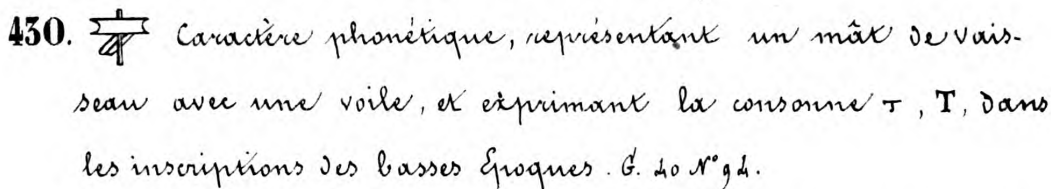 430. Caractère phonétique, représentant un mât de vais-
seau avec une voile, et exprimant la consonne ⲧ, T, dans
les inscriptions des basses Époques. G. 40 N° 94.